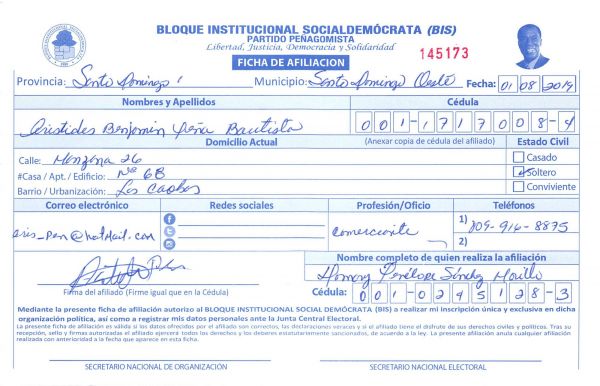 BLOQUE INSTITUCIONAL SOCIALDEMÓCRATA (BIS)
PARTIDO PEÑAGOMISTA
Libertad, Justicia, Democracia y Solidaridad
FICHA DE AFILIACION
145173
Provincia: Santo Domingo Municipio: Santo Domingo Oeste Fecha: 01 08 2019
Nombres y Apellidos Cédula
Aristides Benjamin Peña Bautista 001-1717008-4
Domicilio Actual (Anexar copia de cédula del afiliado) Estado Civil
Calle: Manzana 26 Casado
#Casa / Apt. / Edificio: Nº 6B Soltero
Barrio / Urbanización: Los Caobos Conviviente
Correo electrónico Redes sociales Profesión/Oficio Teléfonos
aris_pen@hotmail.com comerciante 1) 809-916-8875
2)
Nombre completo de quien realiza la afiliación
Penélope Sánchez Morillo
Firma del afiliado (Firme igual que en la Cédula) Cédula: 001-0245128-3
Mediante la presente ficha de afiliación autorizo al BLOQUE INSTITUCIONAL SOCIAL DEMÓCRATA (BIS) a realizar mi inscripción única y exclusiva en dicha
organización política, así como a registrar mis datos personales ante la Junta Central Electoral.
La presente ficha de afiliación es válida si los datos ofrecidos por el afiliado son correctos, las declaraciones veraces y si el afiliado tiene el disfrute de sus derechos civiles y políticos. Tras su
recepción, sello y firmas autorizadas el afiliado ejercerá todos los derechos y los deberes estatutariamente sancionados, de acuerdo a la ley. La presente afiliación anula cualquier afiliación
realizada con anterioridad a la fecha que aparece en esta ficha.
SECRETARIO NACIONAL DE ORGANIZACIÓN SECRETARIO NACIONAL ELECTORAL